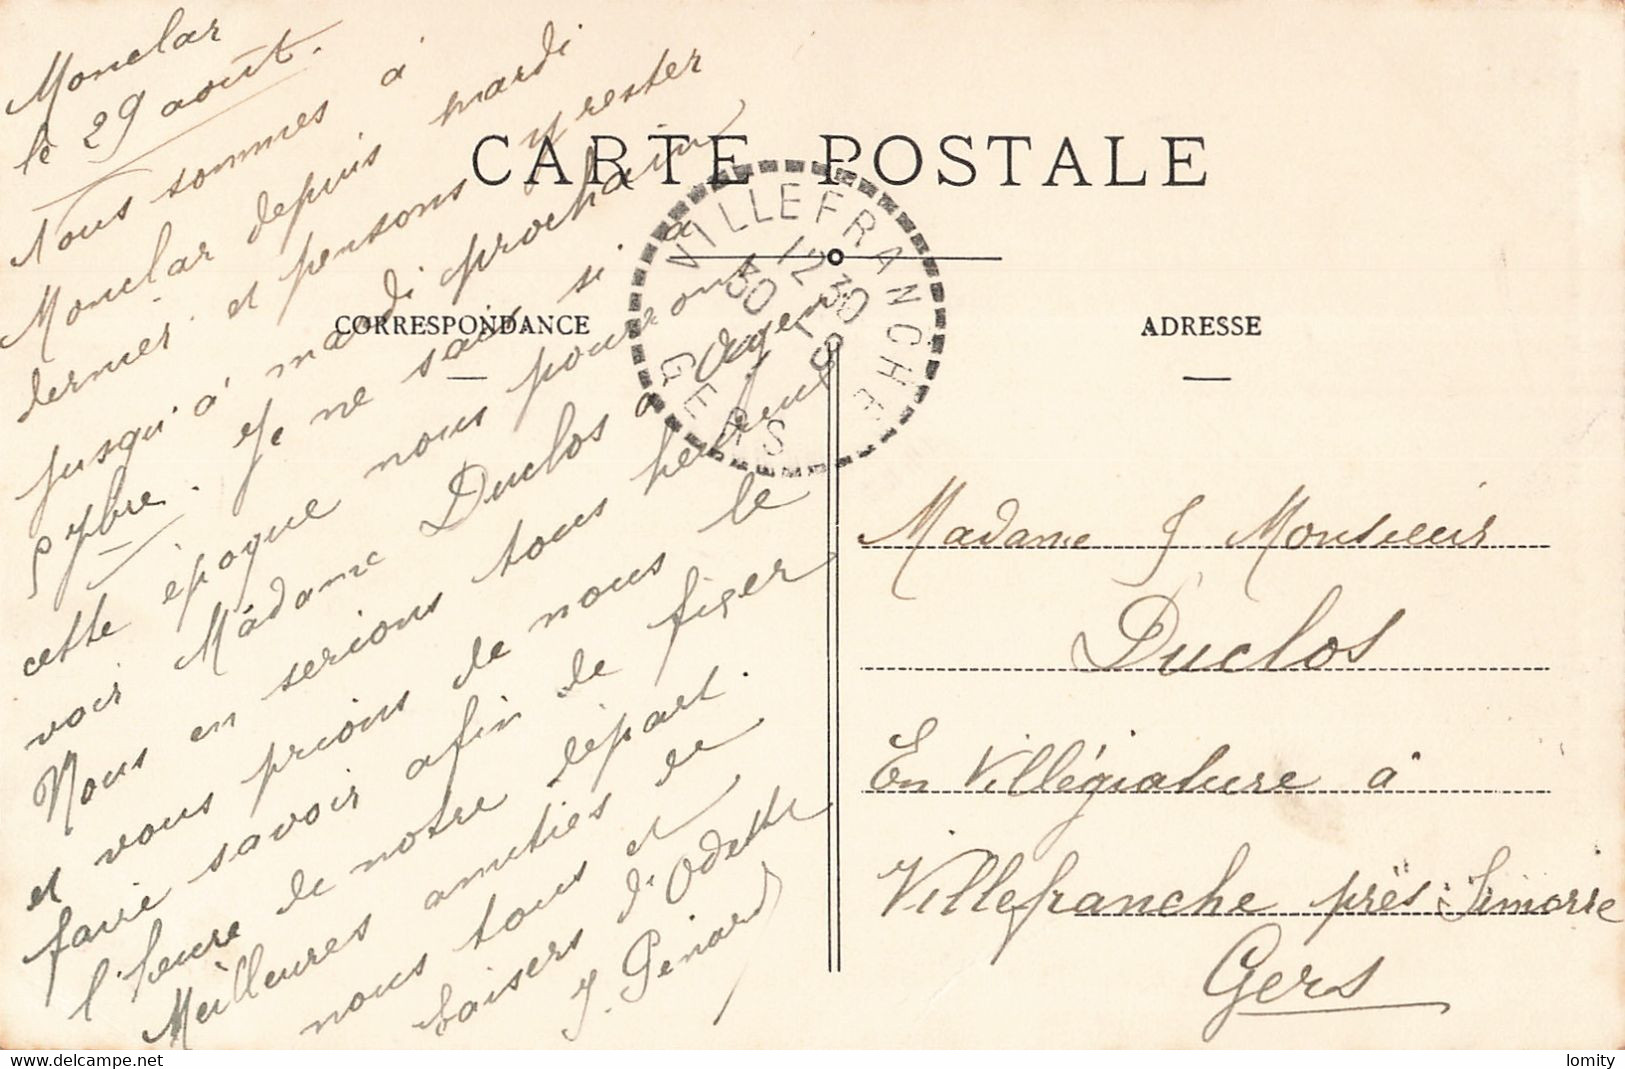 CARTE POSTALE
CORRESPONDANCE
ADRESSE
Monclar
le 29 août.
Nous sommes à
Monclar depuis mardi
dernier et pensons y rester
jusqu'à mardi prochain
5 7bre. Je ne sais si à
cette époque nous pourrons
voir Madame Duclos à Agen
Nous en serions tous heureux
et vous prions de nous le
faire savoir afin de fixer
l'heure de notre départ.
Meilleures amitiés de
nous tous et
baisers d'Odette
J. Penard
VILLEFRANCHE
12 30
30
GERS
Madame & Monsieur
Duclos
En Villégiature à
Villefranche près Simorre
Gers
delcampe.net
lomity